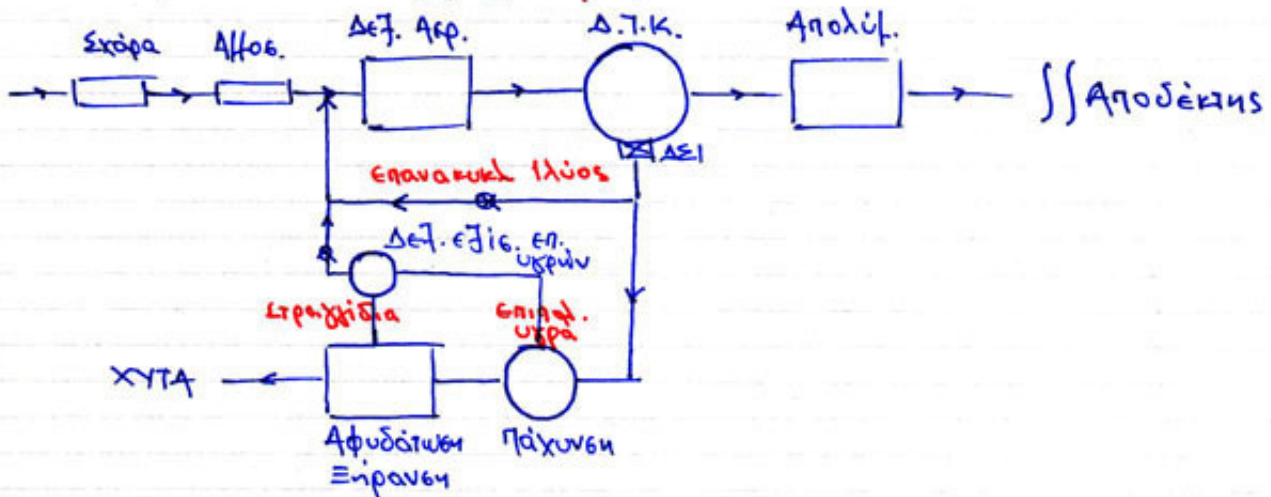 Σχάρα
Αμμοσ.
Δεξ. Αερ.
Δ.Τ.Κ.
Απολύμ.
Αποδέκτης
ΔΣΙ
επανακυκλ ιλύος
Δεξ. εξίσ. επ.
υγρών
Στραγγίδια
επιπλ.
υγρά
ΧΥΤΑ
Αφυδάτωση
Ξήρανση
Πάχυνση